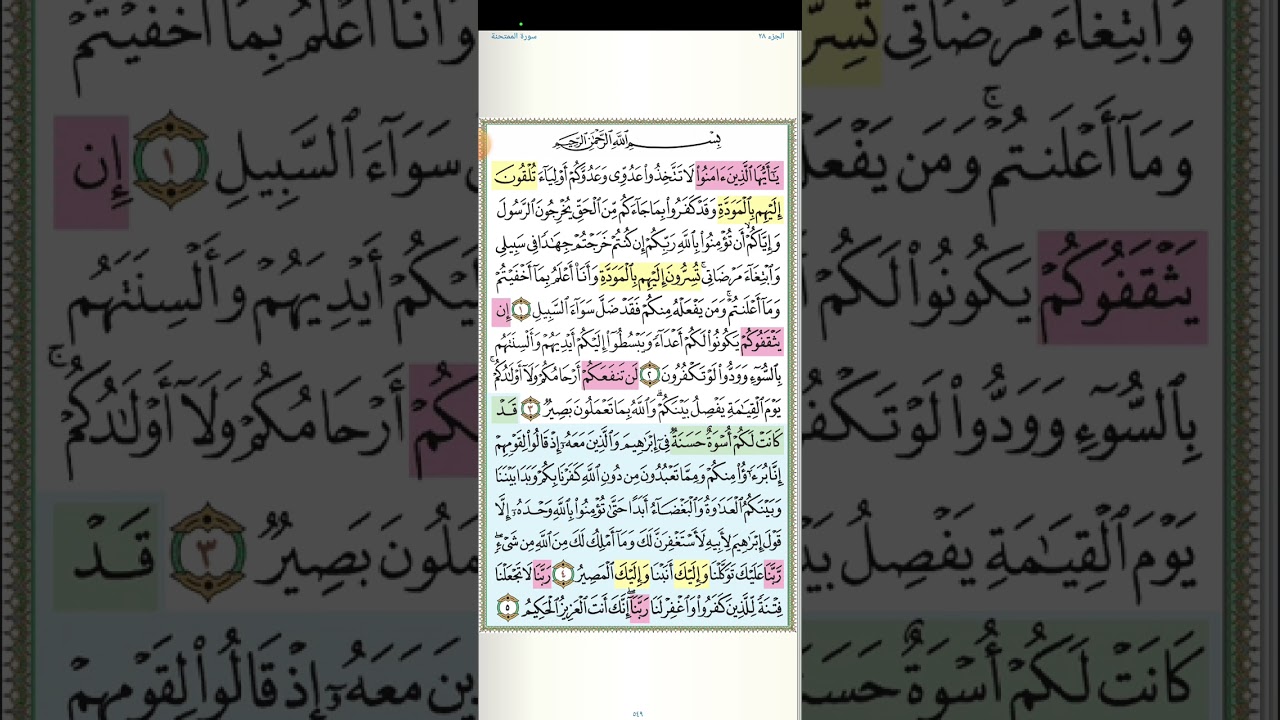 الجزء ٢٨
سورة الممتحنة
بِسْمِ ٱللَّهِ ٱلرَّحْمَٰنِ ٱلرَّحِيمِ
يَٰٓأَيُّهَا ٱلَّذِينَ ءَامَنُوا۟ لَا تَتَّخِذُوا۟ عَدُوِّى وَعَدُوَّكُمْ أَوْلِيَآءَ تُلْقُونَ
إِلَيْهِم بِٱلْمَوَدَّةِ وَقَدْ كَفَرُوا۟ بِمَا جَآءَكُم مِّنَ ٱلْحَقِّ يُخْرِجُونَ ٱلرَّسُولَ
وَإِيَّاكُمْ ۙ أَن تُؤْمِنُوا۟ بِٱللَّهِ رَبِّكُمْ إِن كُنتُمْ خَرَجْتُمْ جِهَٰدًا فِى سَبِيلِى
وَٱبْتِغَآءَ مَرْضَاتِى ۚ تُسِرُّونَ إِلَيْهِم بِٱلْمَوَدَّةِ وَأَنَا۠ أَعْلَمُ بِمَآ أَخْفَيْتُمْ
وَمَآ أَعْلَنتُمْ ۚ وَمَن يَفْعَلْهُ مِنكُمْ فَقَدْ ضَلَّ سَوَآءَ ٱلسَّبِيلِ ١ إِن
يَثْقَفُوكُمْ يَكُونُوا۟ لَكُمْ أَعْدَآءً وَيَبْسُطُوٓا۟ إِلَيْكُمْ أَيْدِيَهُمْ وَأَلْسِنَتَهُم
بِٱلسُّوٓءِ وَوَدُّوا۟ لَوْ تَكْفُرُونَ ٢ لَن تَنفَعَكُمْ أَرْحَامُكُمْ وَلَآ أَوْلَٰدُكُمْ ۚ
يَوْمَ ٱلْقِيَٰمَةِ يَفْصِلُ بَيْنَكُمْ ۚ وَٱللَّهُ بِمَا تَعْمَلُونَ بَصِيرٌ ٣ قَدْ
كَانَتْ لَكُمْ أُسْوَةٌ حَسَنَةٌ فِىٓ إِبْرَٰهِيمَ وَٱلَّذِينَ مَعَهُۥٓ إِذْ قَالُوا۟ لِقَوْمِهِمْ
إِنَّا بُرَءَٰٓؤُا۟ مِنكُمْ وَمِمَّا تَعْبُدُونَ مِن دُونِ ٱللَّهِ كَفَرْنَا بِكُمْ وَبَدَا بَيْنَنَا
وَبَيْنَكُمُ ٱلْعَدَٰوَةُ وَٱلْبَغْضَآءُ أَبَدًا حَتَّىٰ تُؤْمِنُوا۟ بِٱللَّهِ وَحْدَهُۥٓ إِلَّا
قَوْلَ إِبْرَٰهِيمَ لِأَبِيهِ لَأَسْتَغْفِرَنَّ لَكَ وَمَآ أَمْلِكُ لَكَ مِنَ ٱللَّهِ مِن شَىْءٍ ۖ
رَّبَّنَا عَلَيْكَ تَوَكَّلْنَا وَإِلَيْكَ أَنَبْنَا وَإِلَيْكَ ٱلْمَصِيرُ ٤ رَبَّنَا لَا تَجْعَلْنَا
فِتْنَةً لِّلَّذِينَ كَفَرُوا۟ وَٱغْفِرْ لَنَا رَبَّنَآ ۖ إِنَّكَ أَنتَ ٱلْعَزِيزُ ٱلْحَكِيمُ ٥
٥٤٩